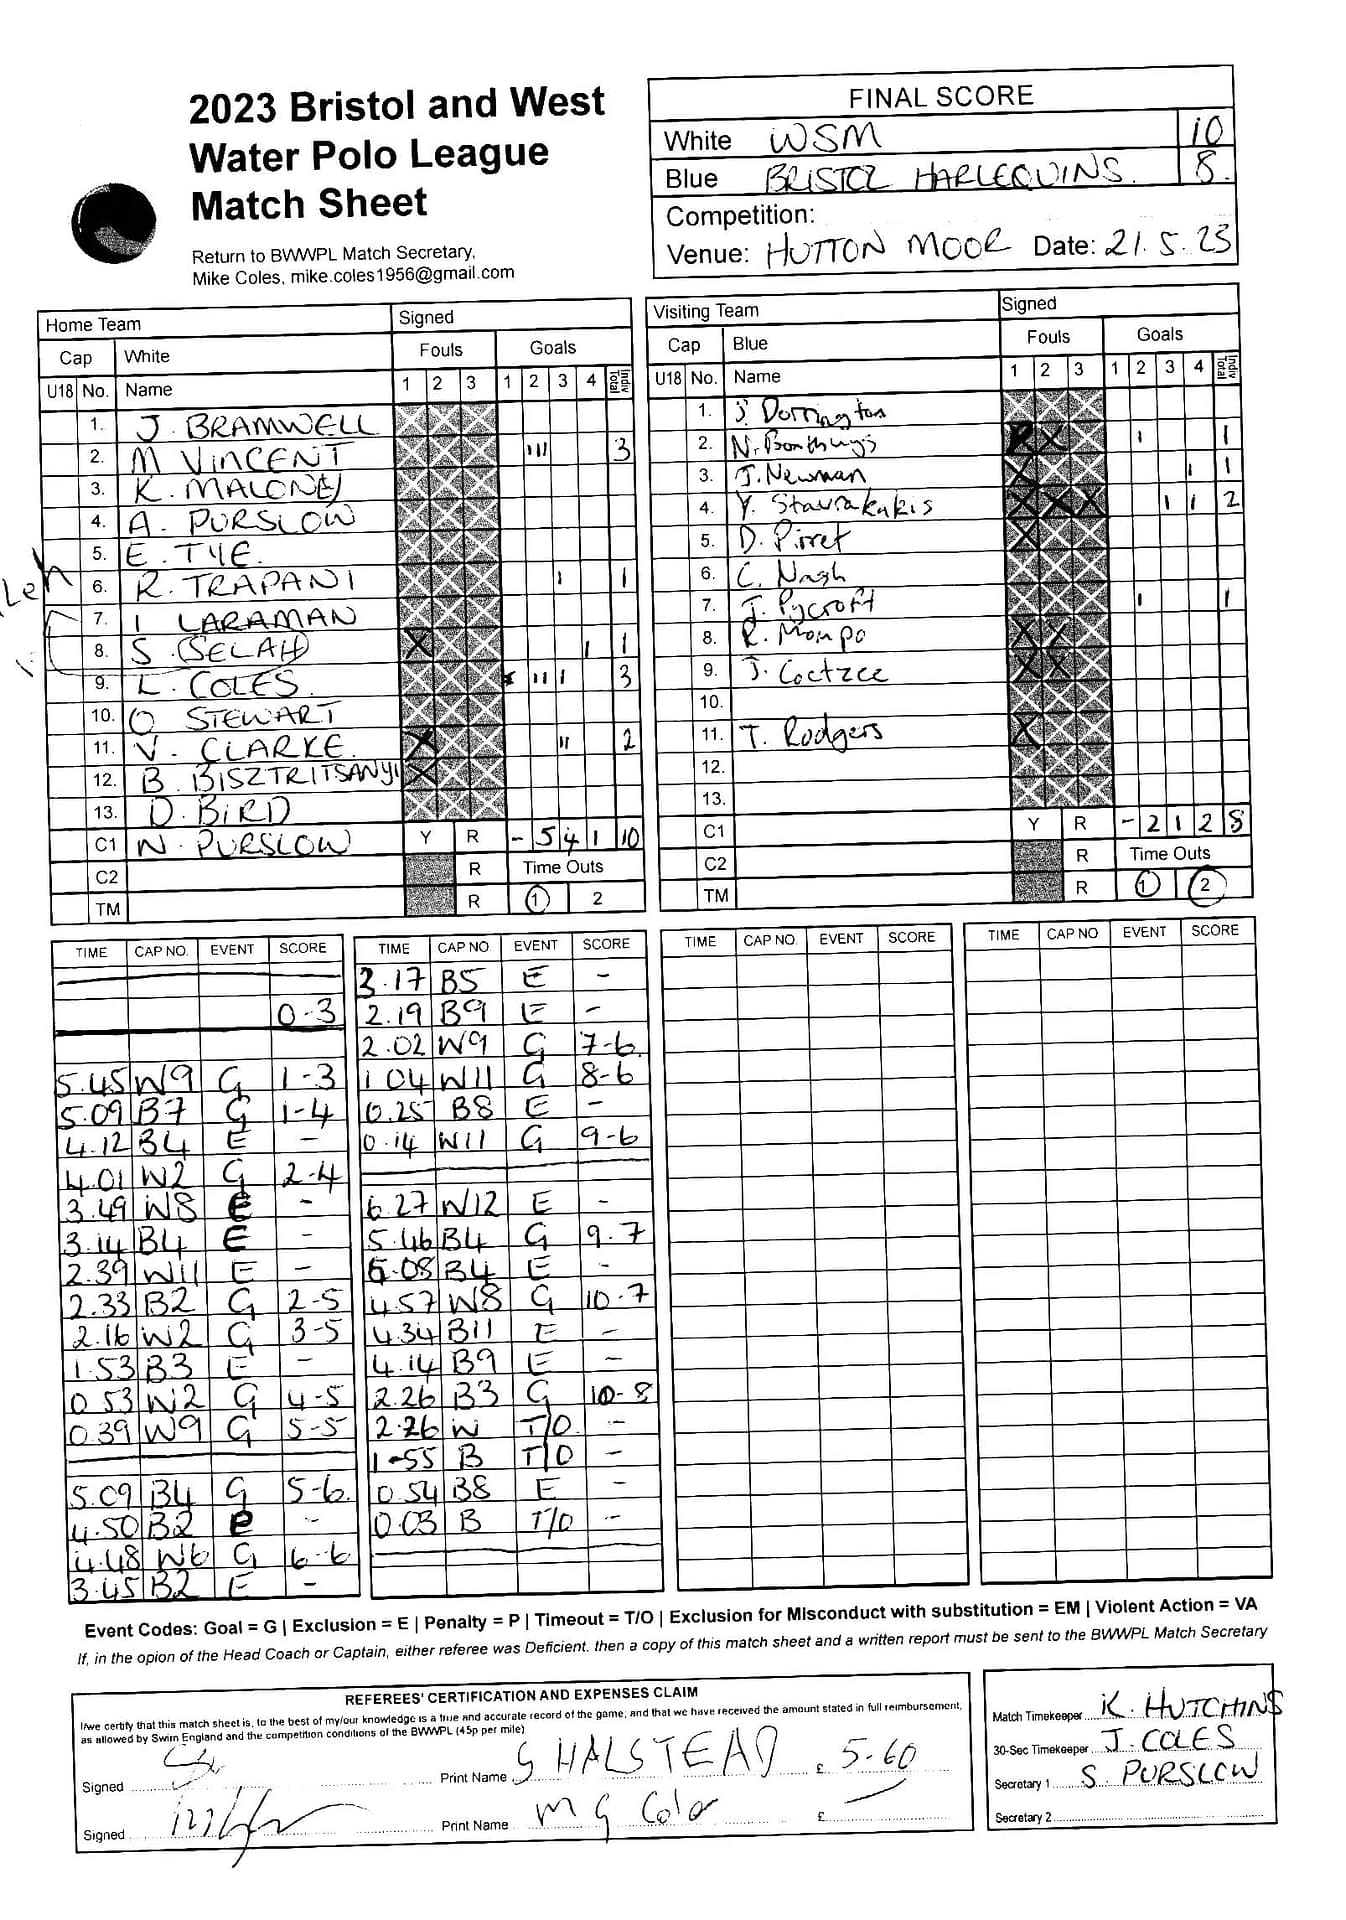 2023 Bristol and West
Water Polo League
Match Sheet
Return to BWWPL Match Secretary,
Mike Coles, mike.coles1956@gmail.com
FINAL SCORE
White WSM 10
Blue BRISTOL HARLEQUINS. 8.
Competition:
Venue: HUTTON MOOR Date: 21.5.23
Home Team Signed
Cap White Fouls Goals
U18 No. Name 1 2 3 1 2 3 4 Indiv Total
1. J. BRAMWELL
2. M VINCENT III 3
3. K. MALONEY
4. A. PURSLOW
5. E. TYE.
6. R. TRAPANI I 1
7. I LARAMAN
8. S. SELAH X I 1
9. L. COLES. II I 3
10. O STEWART
11. V. CLARKE. X II 2
12. B. BISZTRITSANYI X
13. D. BIRD
C1 N. PURSLOW Y R - 5 4 1 10
C2 R Time Outs
TM R 1 2
Visiting Team Signed
Cap Blue Fouls Goals
U18 No. Name 1 2 3 1 2 3 4 Indiv Total
1. J. Dorrington
2. N. Bonthuys X I 1
3. J. Newman X I 1
4. Y. Stavrakakis X X X I I 2
5. D. Pirret X
6. C. Nash
7. J. Pycroft I 1
8. R. Mompo X X
9. J. Coetzee X X
10.
11. T. Rodgers X
12.
13.
C1 Y R - 2 1 2 8
C2 R Time Outs
TM R 1 2
TIME CAP NO. EVENT SCORE
0-3
5.45 W9 G 1-3
5.09 B7 G 1-4
4.12 B4 E -
4.01 W2 G 2-4
3.49 W8 E -
3.14 B4 E -
2.39 W11 E -
2.33 B2 G 2-5
2.16 W2 G 3-5
1.53 B3 E -
0.53 W2 G 4-5
0.39 W9 G 5-5
5.09 B4 G 5-6.
4.50 B2 E -
4.48 W6 G 6-6
3.45 B2 E -
TIME CAP NO EVENT SCORE
3.17 B5 E -
2.19 B9 E -
2.02 W9 G 7-6.
1 04 W11 G 8-6
0.25 B8 E -
0.14 W11 G 9-6
6.27 W12 E -
5.46 B4 G 9.7
5.08 B4 E -
4.57 W8 G 10-7
4.34 B11 E -
4.14 B9 E -
2.26 B3 G 10-8
2.26 W T/O. -
1-55 B T/O -
0.54 B8 E -
0.03 B T/O -
TIME CAP NO. EVENT SCORE
TIME CAP NO EVENT SCORE
Event Codes: Goal = G | Exclusion = E | Penalty = P | Timeout = T/O | Exclusion for Misconduct with substitution = EM | Violent Action = VA
If, in the opion of the Head Coach or Captain, either referee was Deficient. then a copy of this match sheet and a written report must be sent to the BWWPL Match Secretary
REFEREES' CERTIFICATION AND EXPENSES CLAIM
I/we certify that this match sheet is, to the best of my/our knowledge is a true and accurate record of the game; and that we have received the amount stated in full reimbursement,
as allowed by Swim England and the competition conditions of the BWWPL (45p per mile)
Signed Print Name S HALSTEAD £ 5-60
Signed Print Name M G Coles £
Match Timekeeper K. HUTCHINS
30-Sec Timekeeper J. COLES
Secretary 1 S. PURSLOW
Secretary 2